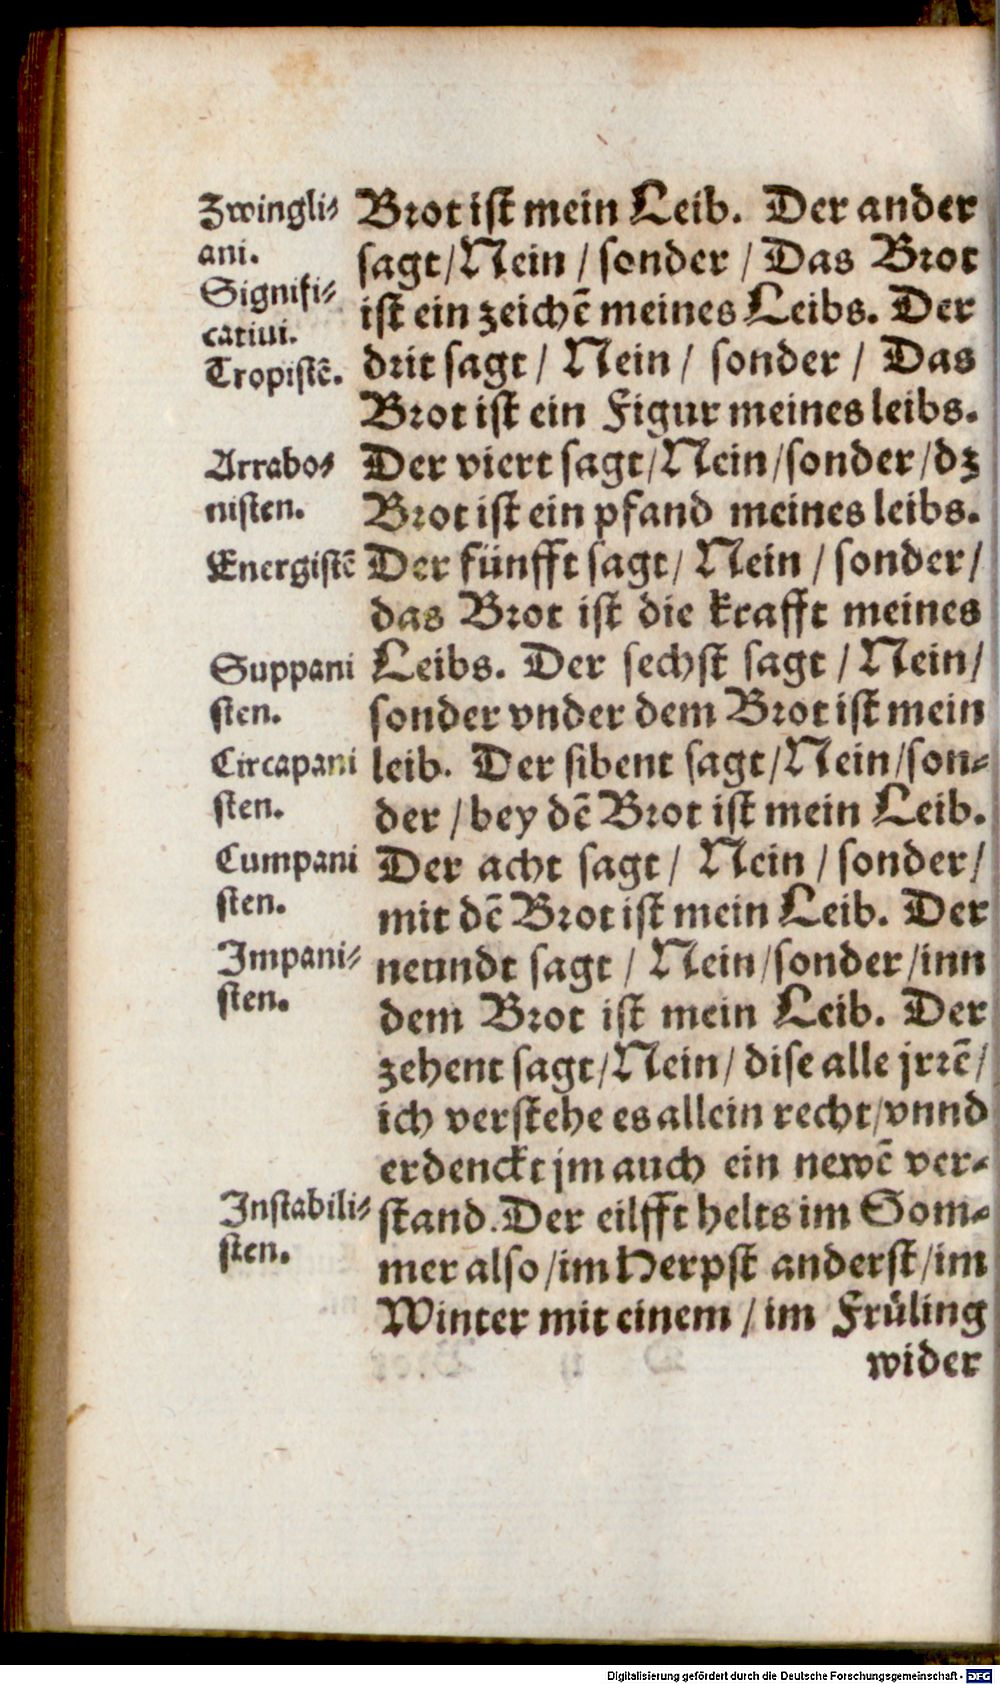 Zwingli⸗
ani.
Signifi⸗
catiui.
Tropistē.
Arrabo⸗
nisten.
Energistē
Suppani
sten.
Circapani
sten.
Cumpani
sten.
Impani⸗
sten.
Instabili⸗
sten.
Brot ist mein Leib. Der ander
sagt / Nein / sonder / Das Brot
ist ein zeichē meines Leibs. Der
drit sagt / Nein / sonder / Das
Brot ist ein Figur meines leibs.
Der viert sagt / Nein / sonder / dz
Brot ist ein pfand meines leibs.
Der fünfft sagt / Nein / sonder /
das Brot ist die krafft meines
Leibs. Der sechst sagt / Nein /
sonder vnder dem Brot ist mein
leib. Der sibent sagt / Nein / son⸗
der / bey dē Brot ist mein Leib.
Der acht sagt / Nein / sonder /
mit dē Brot ist mein Leib. Der
neundt sagt / Nein / sonder / inn
dem Brot ist mein Leib. Der
zehent sagt / Nein / dise alle jrrē /
ich verstehe es allein recht / vnnd
erdenckt jm auch ein newē ver⸗
stand. Der eilfft helts im Som⸗
mer also / im Herpst anderst / im
Winter mit einem / im Früling
wider
Digitalisierung gefördert durch die Deutsche Forschungsgemeinschaft - DFG